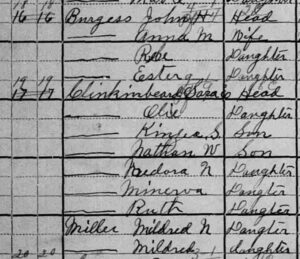 16 16 Burgess John H Head
—— Anna M Wife
—— Rose Daughter
—— Ester Daughter
17 17 Clinkinbeard Sara Head
—— Olie Daughter
—— Kinzea S. Son
—— Nathan W Son
—— Nudora N Daughter
—— Minerva Daugter
—— Ruth Daugter
Miller Mildred N Daugter
20 20 —— Mildred daughter